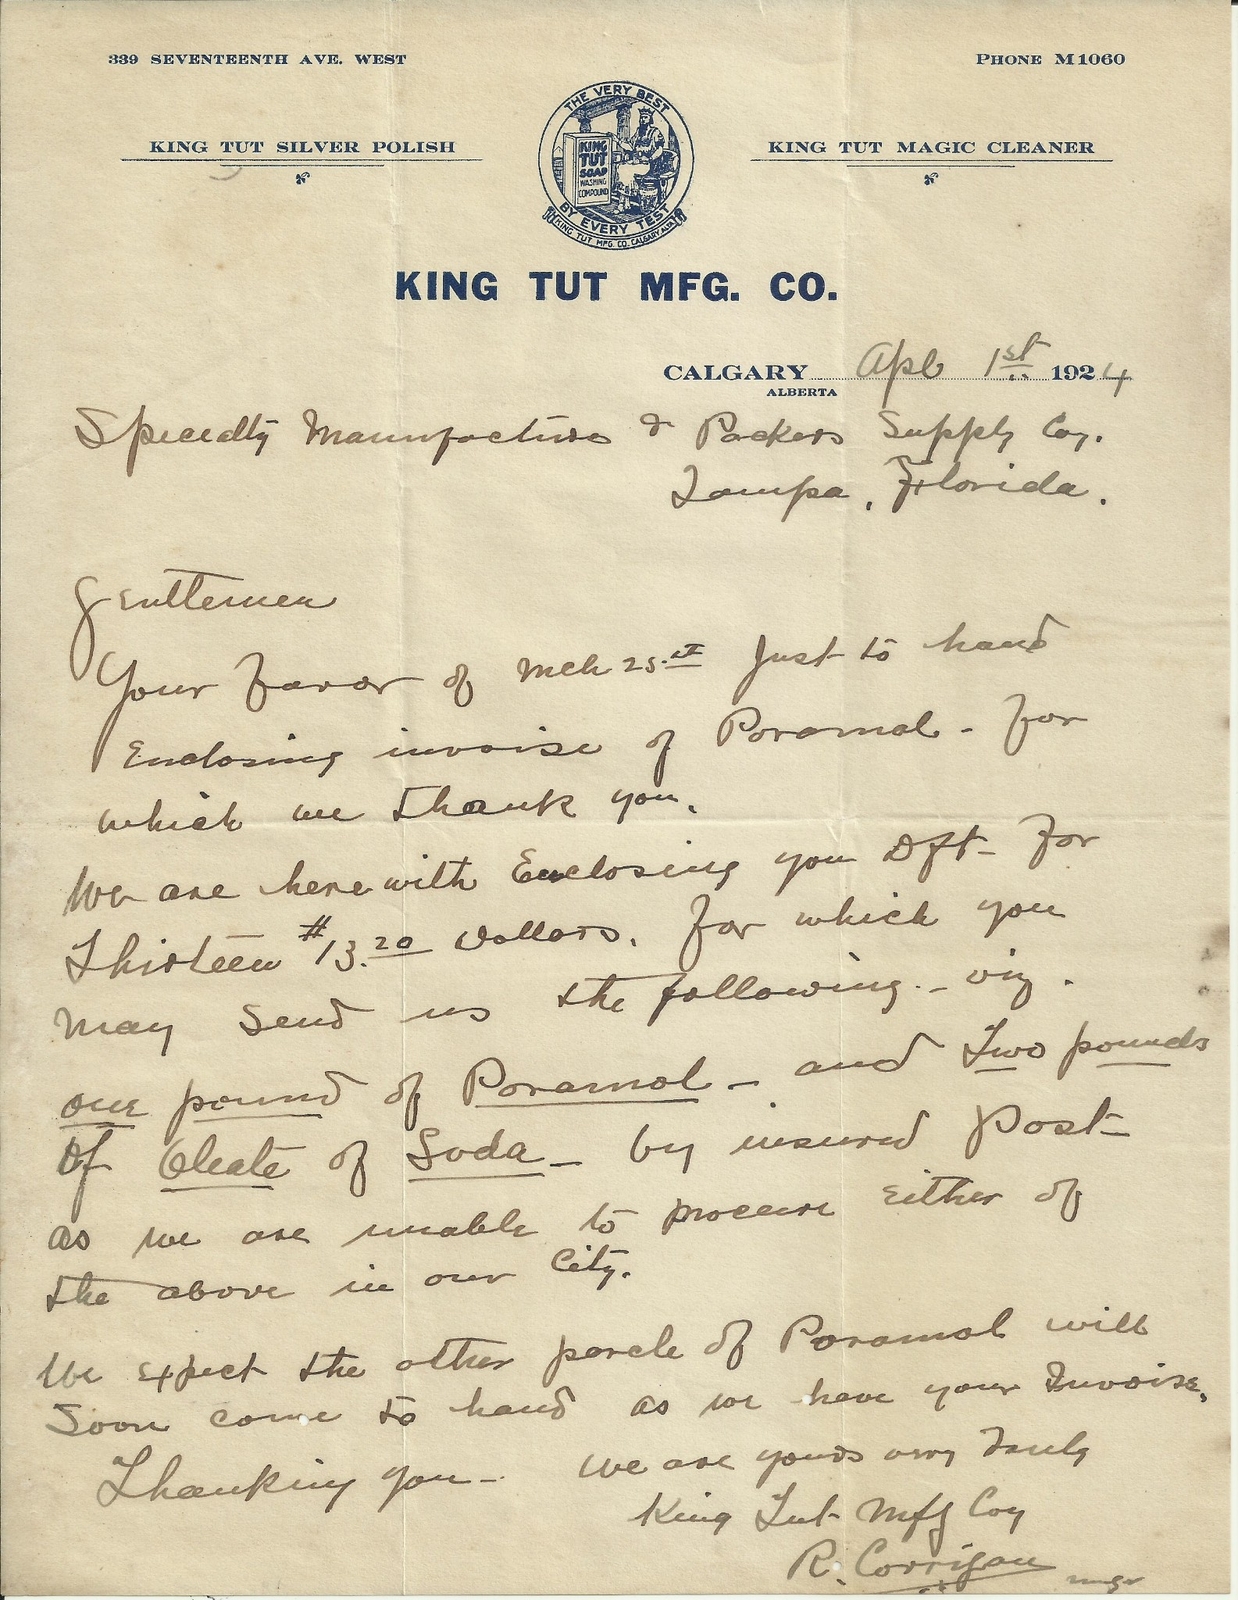 339 SEVENTEENTH AVE. WEST
PHONE M1060
THE VERY BEST
KING TUT SOAP WASHING COMPOUND
BY EVERY TEST
KING TUT MFG. CO. CALGARY ALTA
KING TUT SILVER POLISH
KING TUT MAGIC CLEANER
KING TUT MFG. CO.
CALGARY Apl 1st 1924
ALBERTA
Specialty Manufactures & Packers Supply Coy.
Tampa, Florida.
Gentlemen
Your favor of Mch 25.st Just to hand
Enclosing invoise of Poramol - for
which we thank you.
We are here with Enclosing you Dft - for
Thirteen #13.20 Dollars. for which you
may send us the following - viz.
one pound of Poramol - and Two pounds
of Oleate of Soda - by insured Post -
as we are unable to procure either of
the above in our City.
We expect the other parcle of Poramol will
Soon come to hand as we have your Invoise.
Thanking you - We are yours very Truly
King Tut Mfg Coy
R. Corrigan mgr